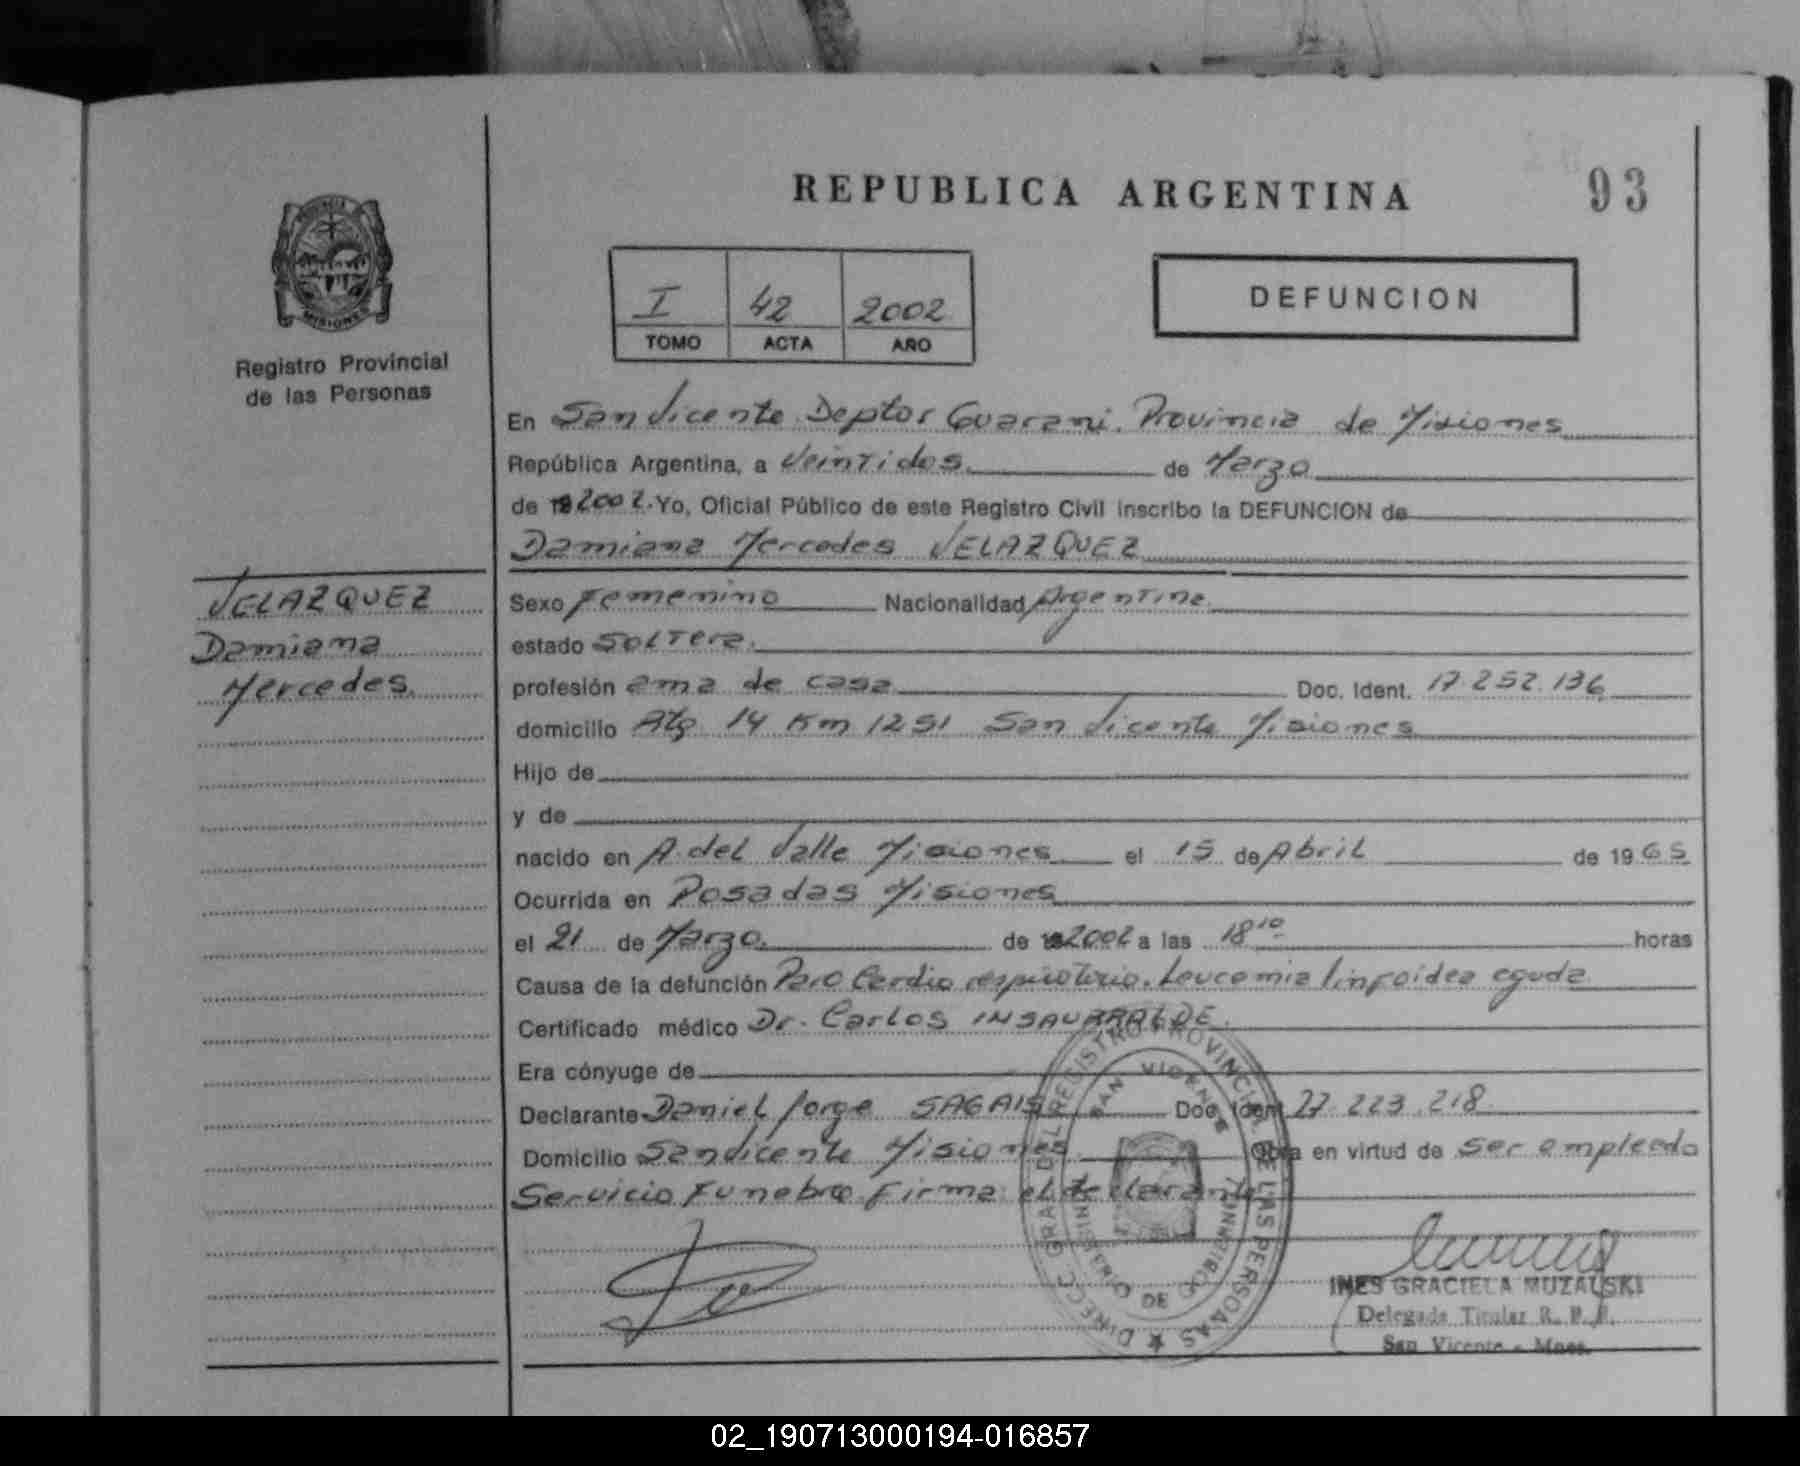 REPUBLICA ARGENTINA
93
PROVINCIA
MISIONES
Registro Provincial
de las Personas
I 42 2002
TOMO ACTA AÑO
DEFUNCION
En San Vicente Deptos Guarani. Provincia de Misiones
República Argentina, a Veintidos de Marzo
de 2002. Yo, Oficial Público de este Registro Civil inscribo la DEFUNCION de
Damiana Mercedes VELAZQUEZ
VELAZQUEZ
Damiana
Mercedes
Sexo Femenino Nacionalidad Argentina
estado Soltera.
profesión ama de casa Doc. Ident. 17.252.136
domicilio Ktg 14 Km 1251 San Vicente Misiones
Hijo de
y de
nacido en A. del Valle Misiones el 15 de Abril de 1965
Ocurrida en Posadas Misiones
el 21 de Marzo. de 2002 a las 18 10 horas
Causa de la defunción Paro Cardio respiratorio. Leucemia linfoidea aguda
Certificado médico Dr. Carlos INSAURRALDE.
Era cónyuge de
Declarante Daniel Jorge SAGAIS Doc. Ident. 27.223.218
Domicilio San Vicente Misiones Obra en virtud de ser empleado
Servicio Funebre Firma el declarante
DIRECC. GRAL. DEL REGISTRO PROVINCIAL DE LAS PERSONAS
SAN VICENTE
DE
INES GRACIELA MUZALSKI
Delegada Titular R. P. P.
San Vicente - Mnes.
02_190713000194-016857